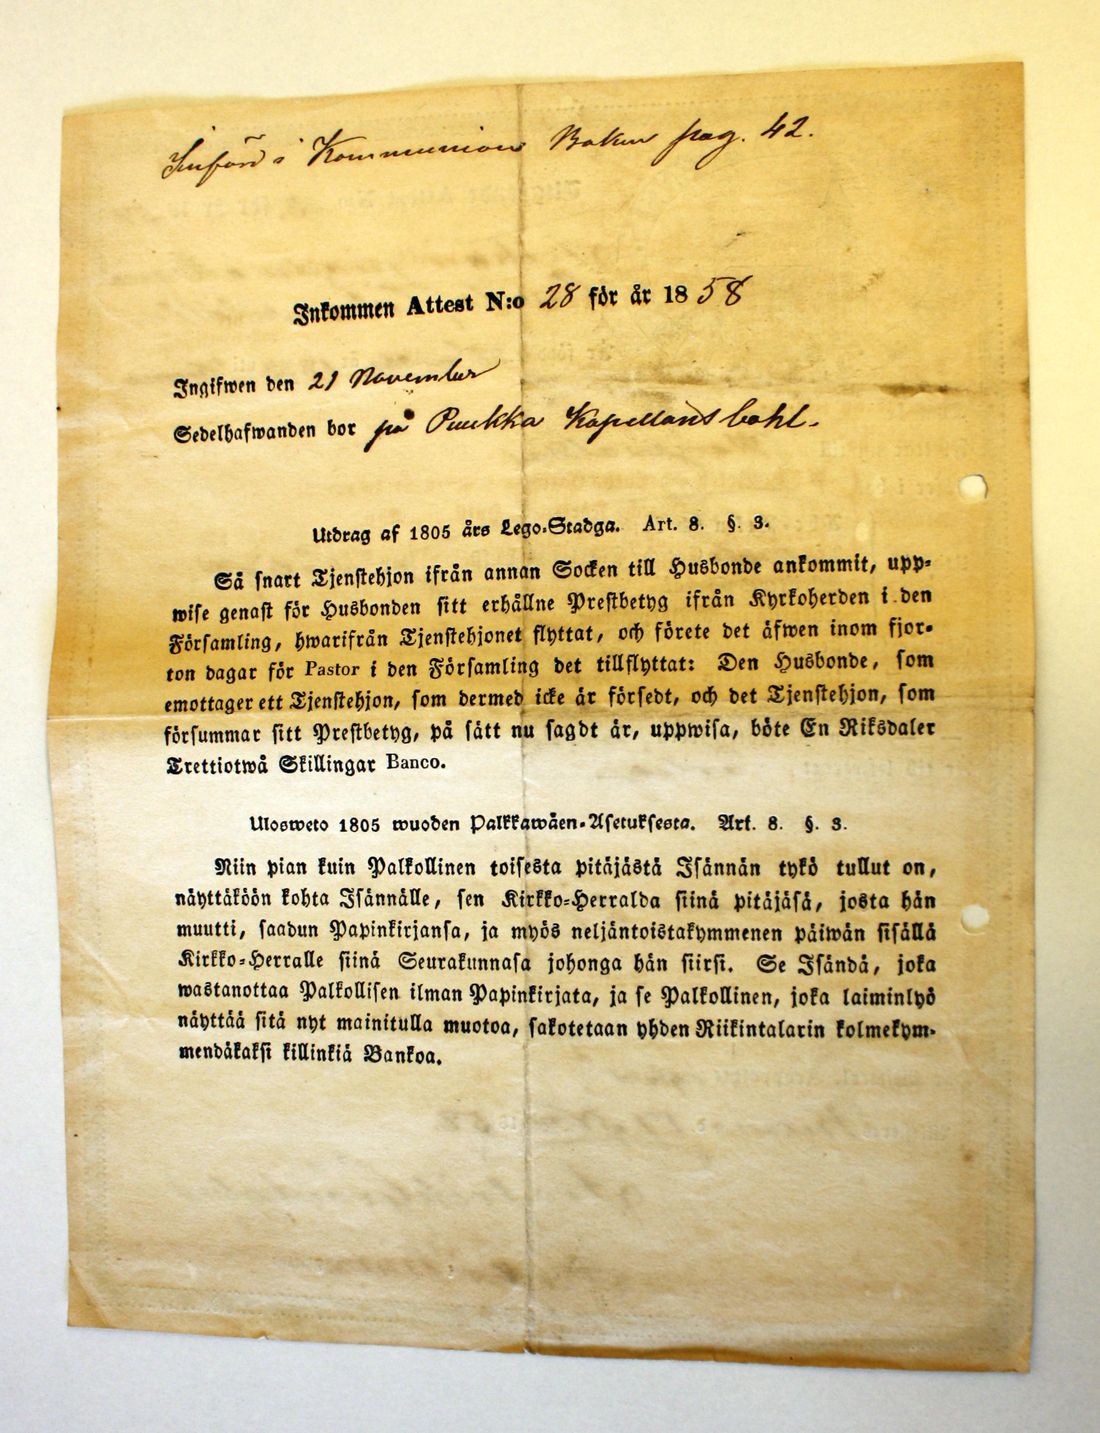 Införd i Kommunion Boken pag. 42.
Inkommen Attest N:o 28 för år 1858
Ingifwen den 21 November
Sedelhafwanden bor på Puukka Kapellansbohl.
Utdrag af 1805 års Lego-Stadga. Art. 8. §. 3.
Så snart Tjenstehjon ifrån annan Socken till Husbonde ankommit, upp-
wise genast för Husbonden sitt erhållne Prestbetyg ifrån Kyrkoherden i den
Församling, hwarifrån Tjenstehjonet flyttat, och förete det äfwen inom fjor-
ton dagar för Pastor i den Församling det tillflyttat: Den Husbonde, som
emottager ett Tjenstehjon, som dermed icke är försedt, och det Tjenstehjon, som
försummar sitt Prestbetyg, på sätt nu sagdt är, uppwisa, böte En Riksdaler
Trettiotwå Skillingar Banco.
Ulosweto 1805 wuoden Palkkawäen-Asetuksesta. Art. 8. §. 3.
Niin pian kuin Palkollinen toisesta pitäjästä Isännän tykö tullut on,
näyttäköön kohta Isännälle, sen Kirkko-Herralda siinä pitäjäsä, josta hän
muutti, saadun Papinkirjansa, ja myös neljäntoistakymmenen päiwän sisällä
Kirkko-Herralle siinä Seurakunnasa johonga hän siirsi. Se Isändä, joka
wastanottaa Palkollisen ilman Papinkirjata, ja se Palkollinen, joka laiminlyö
näyttää sitä nyt mainitulla muotoa, sakotetaan yhden Riikintalarin kolmekym-
mendäkaksi killinkiä Bankoa.